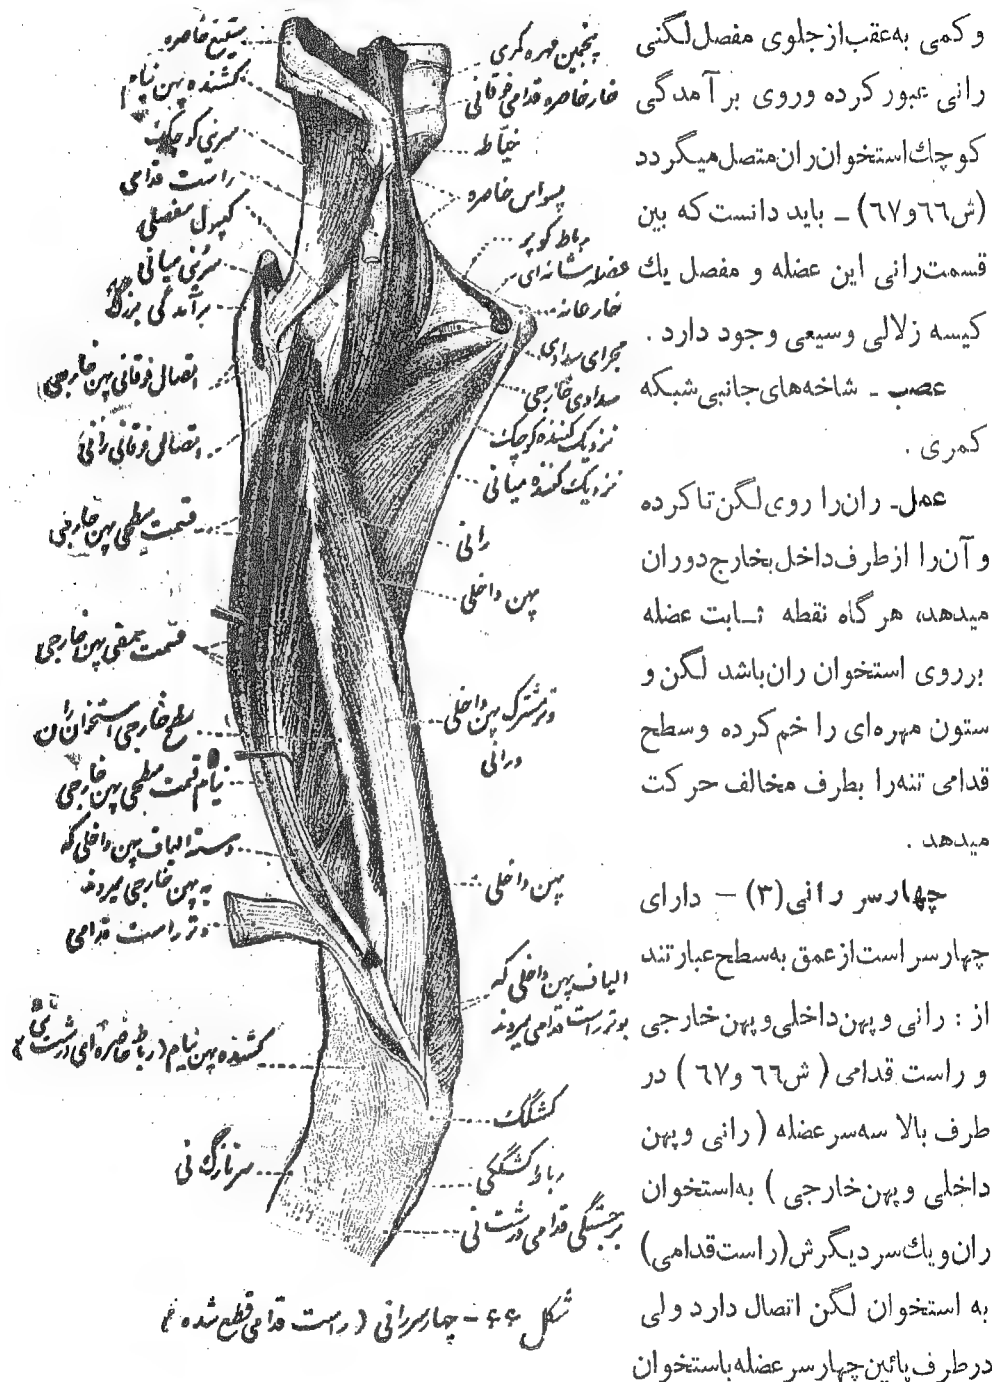 و کمی به‌عقب‌از جلوی مفصل لگنی
رانی عبور کرده وروی برآمدگی
کوچك استخوان ران متصل میگردد
(ش٦٦و٦٧) ـ باید دانست که بین
قسمت رانی این عضله و مفصل یك
کیسه زلالی وسیعی وجود دارد .
عصب ـ شاخه‌های جانبی شبکه
کمری .
عمل‌ـ ران‌را روی لگن تا کرده
و آن‌را از طرف داخل بخارج دوران
میدهد، هر گاه نقطه ثـابت عضله
برروی استخوان ران باشد لگن و
ستون مهره‌ای را خم کرده وسطح
قدامی تنه‌را بطرف مخالف حرکت
میدهد .
چهارسر رانی(۳) – دارای
چهارسر است از عمق به‌سطح عبارتند
از : رانی و پهن داخلی و پهن خارجی
و راست قدامی ( ش٦٦ و٦٧ ) در
طرف بالا سه‌سر عضله ( رانی و پهن
داخلی و پهن خارجی ) به‌استخوان
ران ویك سر دیگرش(راست قدامی)
به استخوان لگن اتصال دارد ولی
در طرف پائین چهارسر عضله باستخوان
ستیغ خاصره
کشنده پهن نیام
سرینی کوچک
راست قدامی
کپسول مفصلی
سرینی میانی
برآمدگی بزرگ
اتصال فوقانی پهن خارجی
اتصال فوقانی رانی
قسمت سطحی پهن خارجی
قسمت عمقی پهن خارجی
سطح خارجی استخوان ران
نیام قسمت سطحی پهن خارجی
دسته الیاف پهن داخلی که
به پهن خارجی میروند
وتر راست قدامی
کشنده پهن نیام (رباط خاصره‌ای درشت نی)
سر نازک نی
پنجمین مهره کمری
خار خاصره قدامی فوقانی
خیاطه
پسواس خاصره
رباط کوپر
عضله شانه‌ای
خار عانه
مجرای سدادی
سدادی خارجی
نزدیک کننده کوچک
نزدیک کننده میانی
رانی
پهن داخلی
وتر مشترک پهن داخلی
ورانی
پهن داخلی
الیاف پهن داخلی که
بوتر راست قدامی میروند
کشگک
رباط کشگکی
برجستگی قدامی درشت نی
شکل ۶۶ – چهارسررانی (راست قدامی قطع شده)